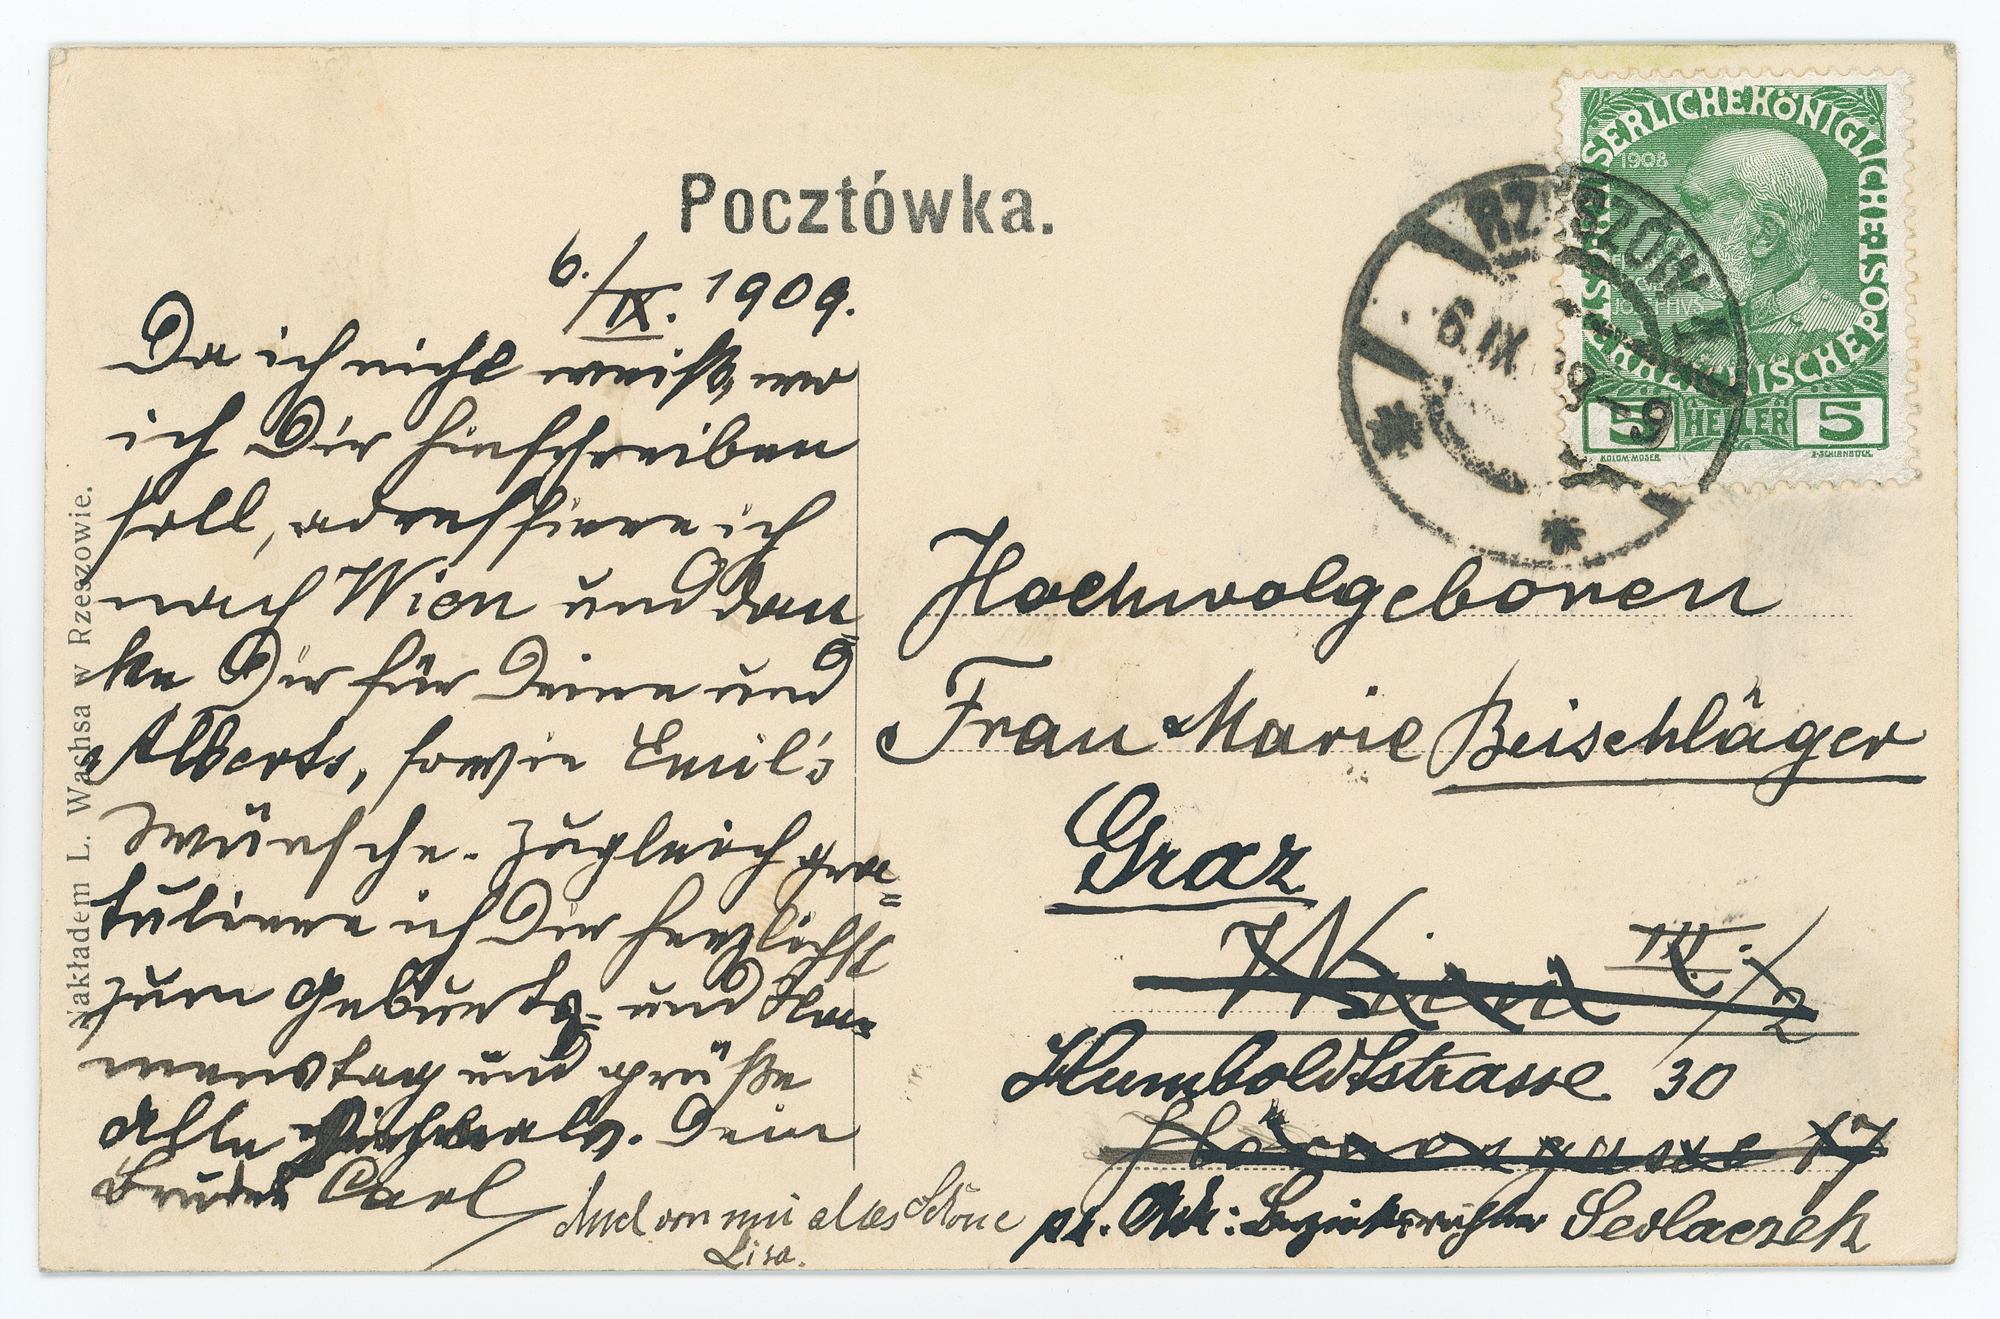 Pocztówka.
6./IX. 1909.
Da ich nicht weiß, wo
ich Dir hinschreiben
soll, adressiere ich
nach Wien und dan=
ke Dir für Deine und
Alberts, sowie Emil's
Wünsche. Zugleich gra=
tuliere ich Dir herzlichst
zum Geburts= und Na=
menstag und grüße
Alle. Dein
Bruder Carl
Auch von mir alles Schöne
Lisa.
Nakładem L. Wachsa w Rzeszowie.
KAISERLICHE KÖNIGLICHE ÖSTERREICHISCHE POST
1908
5 HELLER 5
KOLOM·MOSER
F·SCHIRNBÖCK
RZESZÓW 1
6.IX 09-9
Hochwolgeboren
Frau Marie Beischläger
Graz
Wien III./2
Humboldtstrasse 30
17
pr. Adr: Bezirksrichter Sedlaczek